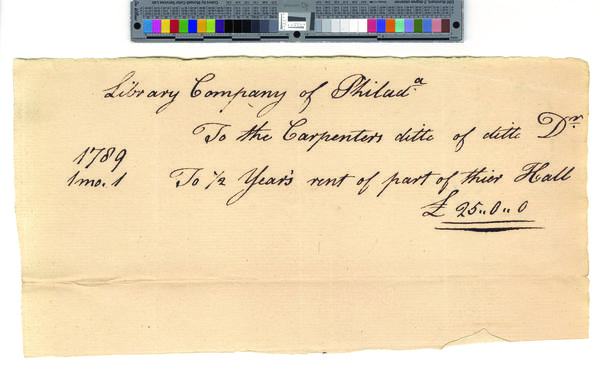 Library Company of Philad.a
To the Carpenters ditto of ditto Dr.
1789
1mo. 1 To 1/2 Year's rent of part of thier Hall
£ 25,,0,,0